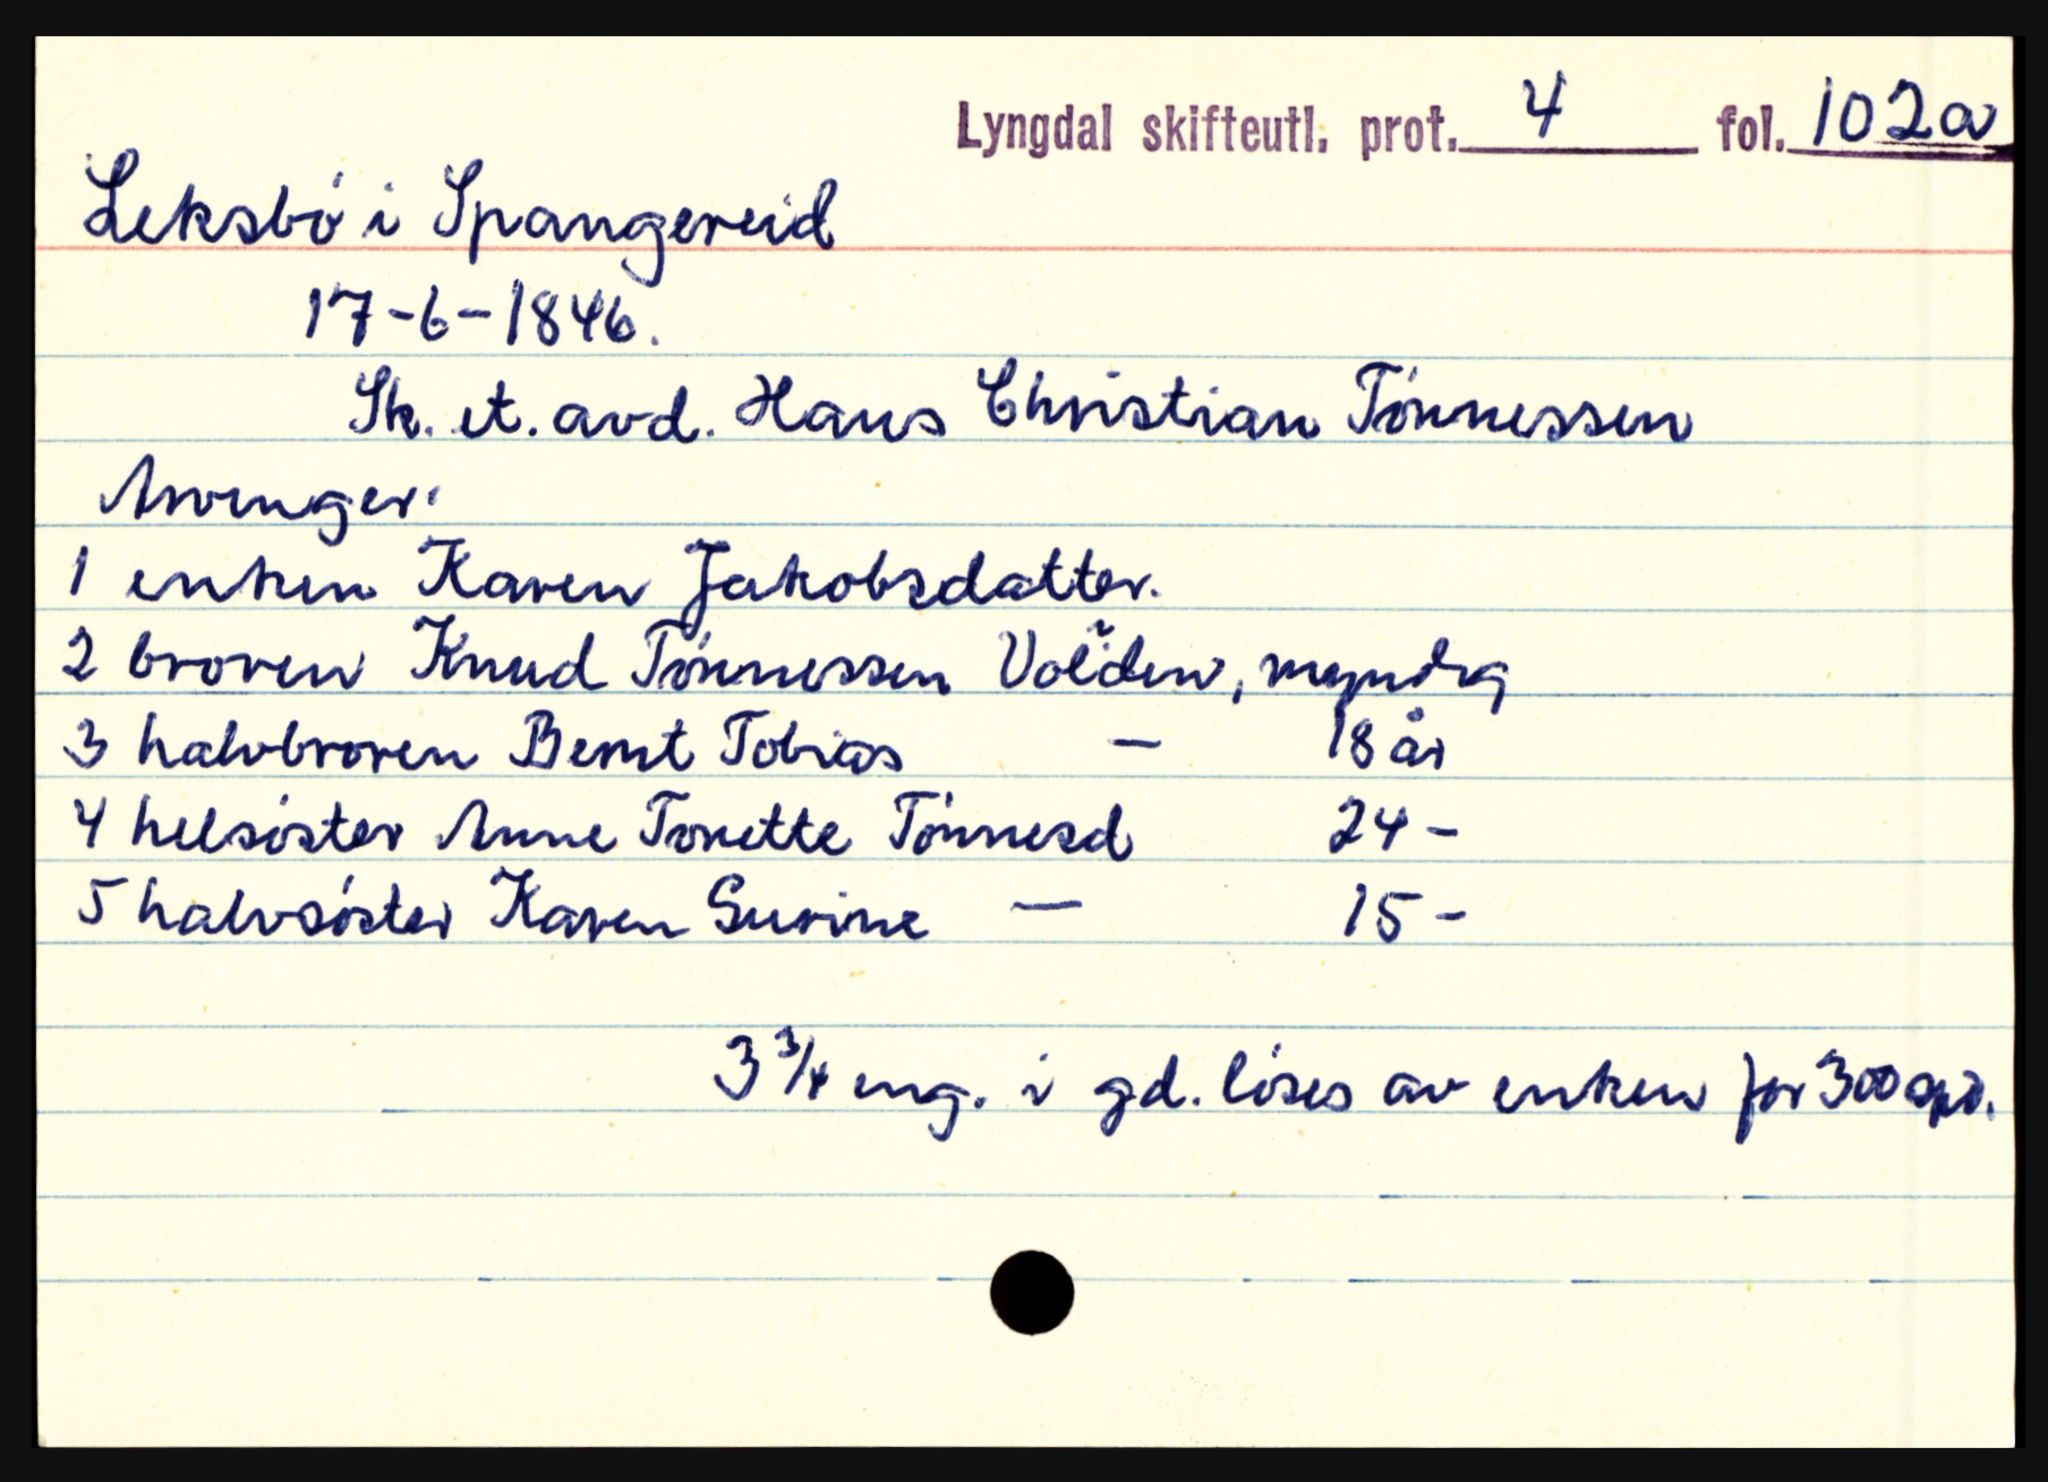 Lyngdal skifteutl. prot. 4 fol. 102a
Leksbö i Spangereid
17-6-1846.
Sk. et. avd. Hans Christian Tönnessen
Arvinger:
1 enken Karen Jakobsdatter.
2 broren Knud Tönnessen Volden, myndig
3 halvbroren Bernt Tobias — 18 år
4 helsöster Anne Tonette Tönnesd 24 -
5 halvsöster Karen Surine — 15 -
3 3/4 eng. i gd. löses av enken for 300 spd.